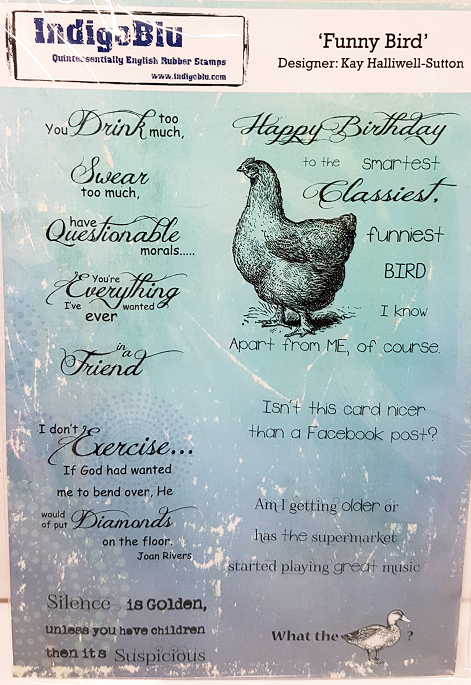 IndigoBlu
Quintessentially English Rubber Stamps
www.indigoblu.com
'Funny Bird'
Designer: Kay Halliwell-Sutton
You Drink too
much,
Swear
too much,
have
Questionable
morals.....
You're
Everything
I've wanted
ever
in a
Friend
I don't
Exercise...
If God had wanted
me to bend over, He
would
of put Diamonds
on the floor.
Joan Rivers
Silence is Golden,
unless you have children
then its Suspicious
Happy Birthday
to the smartest
Classiest,
funniest
BIRD
I know
Apart from ME, of course.
Isn't this card nicer
than a Facebook post?
Am I getting older or
has the supermarket
started playing great music
What the ?